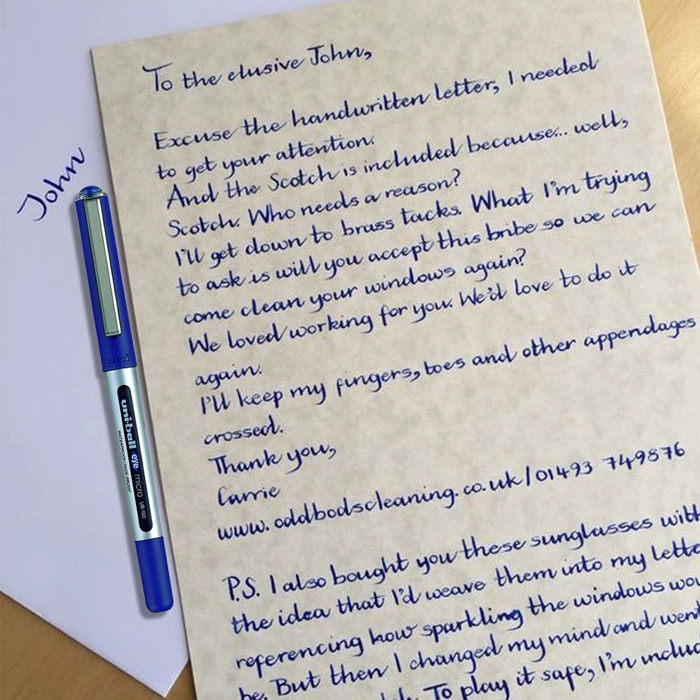 John
uni
uni-ball eye micro UB-150
To the elusive John,
Excuse the handwritten letter, I needed
to get your attention.
And the Scotch is included because... well,
Scotch. Who needs a reason?
I'll get down to brass tacks. What I'm trying
to ask is will you accept this bribe so we can
come clean your windows again?
We loved working for you. We'd love to do it
again.
I'll keep my fingers, toes and other appendages
crossed.
Thank you,
Carrie
www.oddbodscleaning.co.uk/01493 749876
P.S. I also bought you these sunglasses with
the idea that I'd weave them into my lette
referencing how sparkling the windows wou
be. But then I changed my mind and went
To play it safe, I'm includ